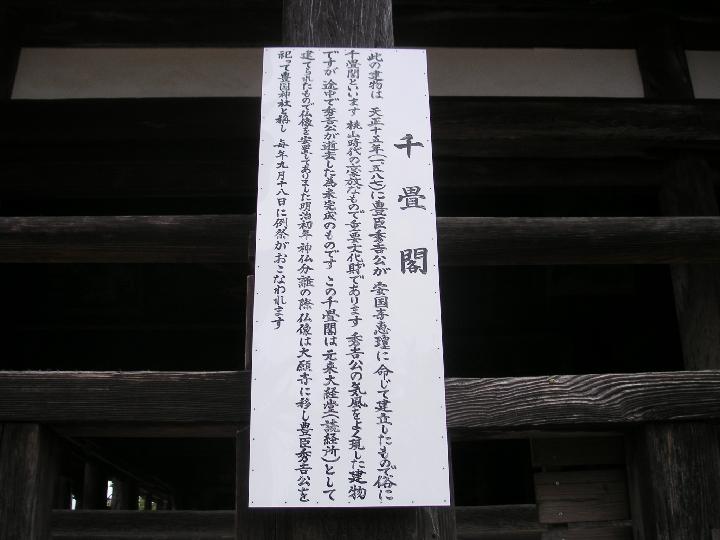 千畳閣
此の建物は 天正十五年(一五八七)に豊臣秀吉公が 安国寺恵瓊に命じて建立したもので俗に
千畳閣といいます 桃山時代の豪放なもので重要文化財であります 秀吉公の気風をよく現した建物
ですが 途中で秀吉公が逝去した為未完成のものです この千畳閣は元来大経堂(読経所)として
建てられたもので仏像を安置してありました明治初年 神仏分離の際仏像は大願寺に移し豊臣秀吉公を
祀って豊国神社と称し 毎年九月十八日に例祭がおこなわれます